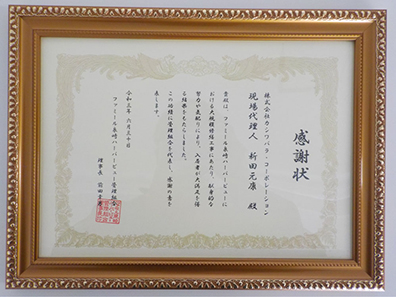 感謝状
株式会社カシワバラ・コーポレーション
現場代理人 新田元康 殿
貴殿は、ファミール泉崎ハーバービューに
おける大規模修繕工事にあたり、献身的
努力と気配りにより、入居者が大満足を得
る結果をもたらしました。
この功績に管理組合を代表し、感謝の意を
表します。
令和三年 六月三十日
ファミール泉崎ハーバービュー管理組合
理事長